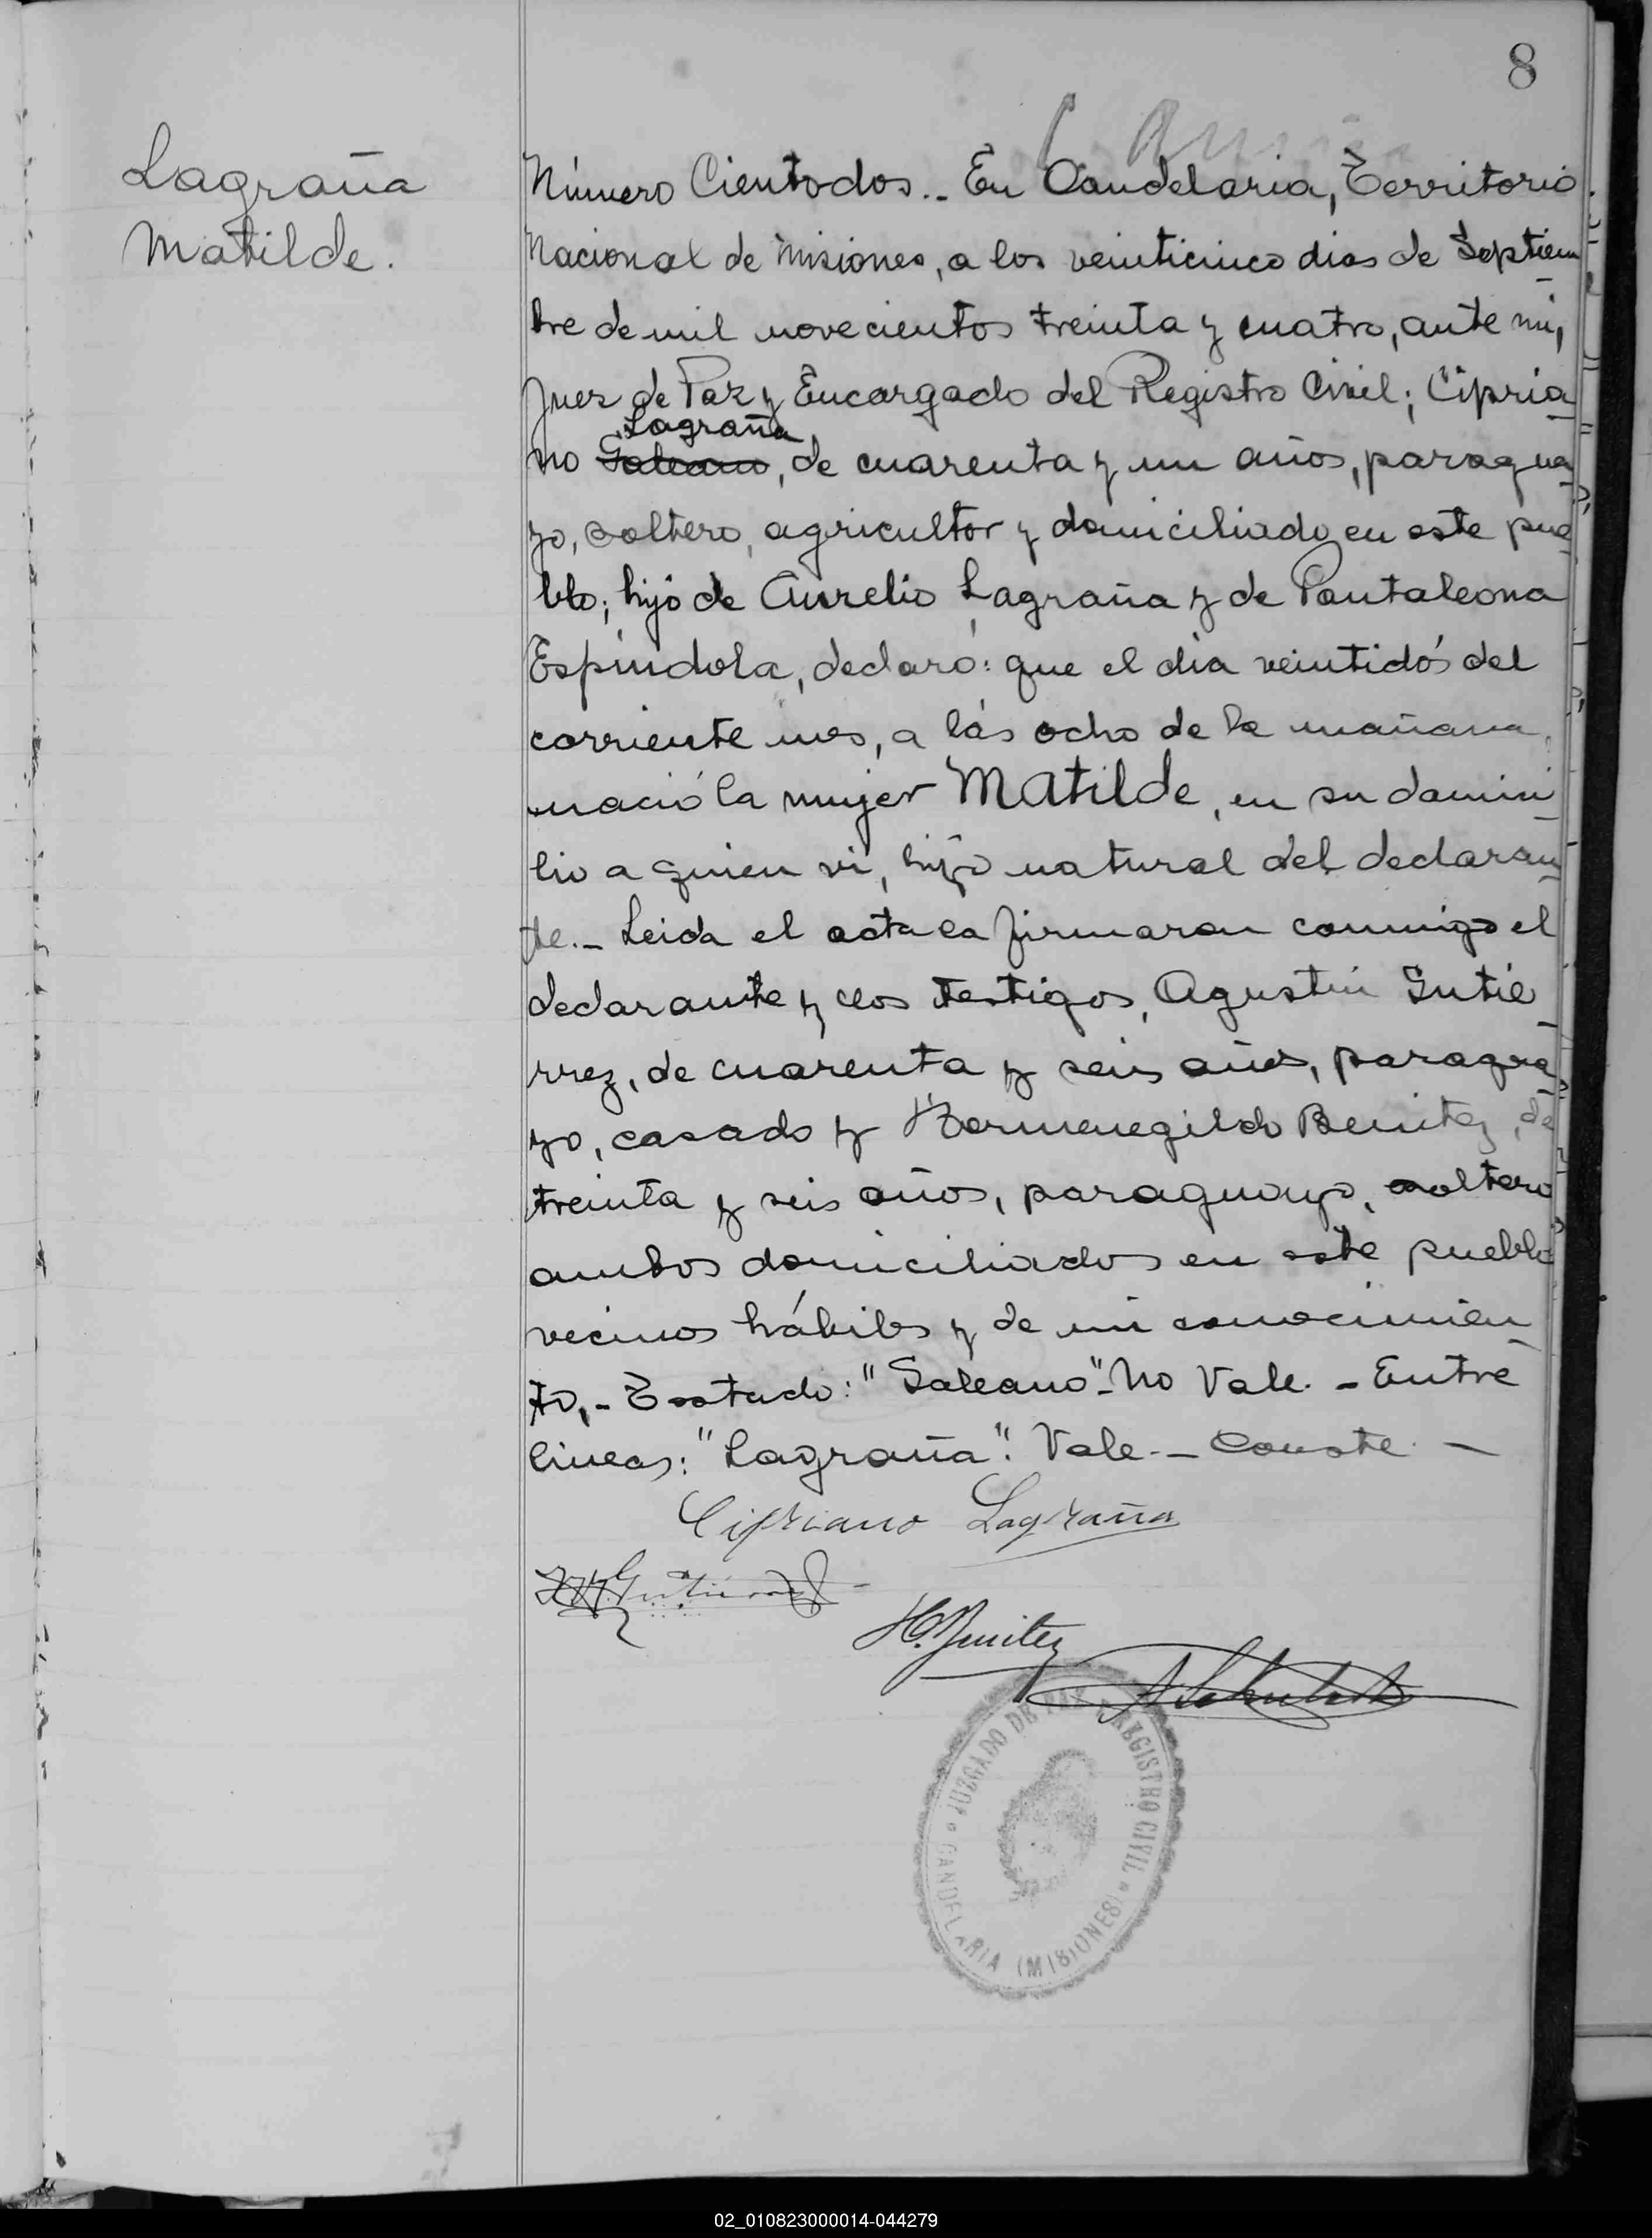 8
Lagraña
Matilde.
Número Cientodos.- En Candelaria, Territorio
Nacional de Misiones, a los veinticinco dias de Septiem
bre de mil novecientos treinta y cuatro, ante mi,
Juez de Paz y Encargado del Registro Civil; Cipria
Lagraña
no Galeano, de cuarenta y un años, paragua
yo, soltero, agricultor y domiciliado en este pue
blo; hijo de Aurelio Lagraña y de Pantaleona
Espíndola, declaró: que el dia veintidós del
corriente mes, a las ocho de la mañana,
nació la mujer Matilde, en su domici
lio a quien vi, hija natural del declaran
te.- Leida el acta la firmaron conmigo el
declarante y los testigos, Agustin Gutié
rrez, de cuarenta y seis años, paragua
yo, casado y Hermenegildo Benitez, de
treinta y seis años, paraguayo, soltero
ambos domiciliados en este pueblo
vecinos hábiles y de mi conocimien
to.- Testado: "Galeano"- No Vale. - Entre
lineas: "Lagraña". Vale. - Conste. -
Cipriano Lagraña
Gutierrez
H. Benitez
JUZGADO DE PAZ Y REGISTRO CIVIL
CANDELARIA (MISIONES)
02_010823000014-044279